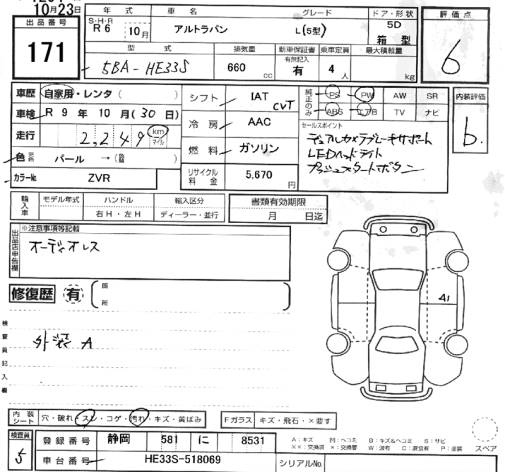 10月23日
出品番号
171
年式
車名
グレード
ドア・形状
評価点
S・H・R
R6 10月
アルトラパン
L(5型)
5D
箱型
6
型式
排気量
新車保証書
有無記入
乗車定員
最大積載量
5BA-HE33S
660 cc
有
4 人
kg
車歴 自家用・レンタ( )
車検 R 9年 10月(30日)
走行 2,249 km マイル
色 パール → (
カラーNo. ZVR
シフト IAT CVT
冷房 AAC
燃料 ガソリン
リサイクル料金 5,670 円
純正のみ
PS PW AW SR
ABS エアB TV ナビ
セールスポイント
デュアルカメラブレーキサポート
LEDヘッドライト
プッシュスタートボタン
内装評価
b.
輸入車
モデル年式
ハンドル
右H・左H
輸入区分
ディーラー・並行
書類有効期限
月 日迄
出品店申告欄
※注意事項等記載
オーディオレス
修復歴 有
箇所
検査員記入欄
外装 A
A1
内装シート
穴・破れ・スレ・コゲ・汚れ・キズ・黄ばみ
Fガラス キズ・飛石・×要す
検査員
5
登録番号 静岡 581 に 8531
車台番号 HE33S-518069
シリアルNo.
A:キズ M:ヘコミ B:キズ&ヘコミ S:サビ
スペア